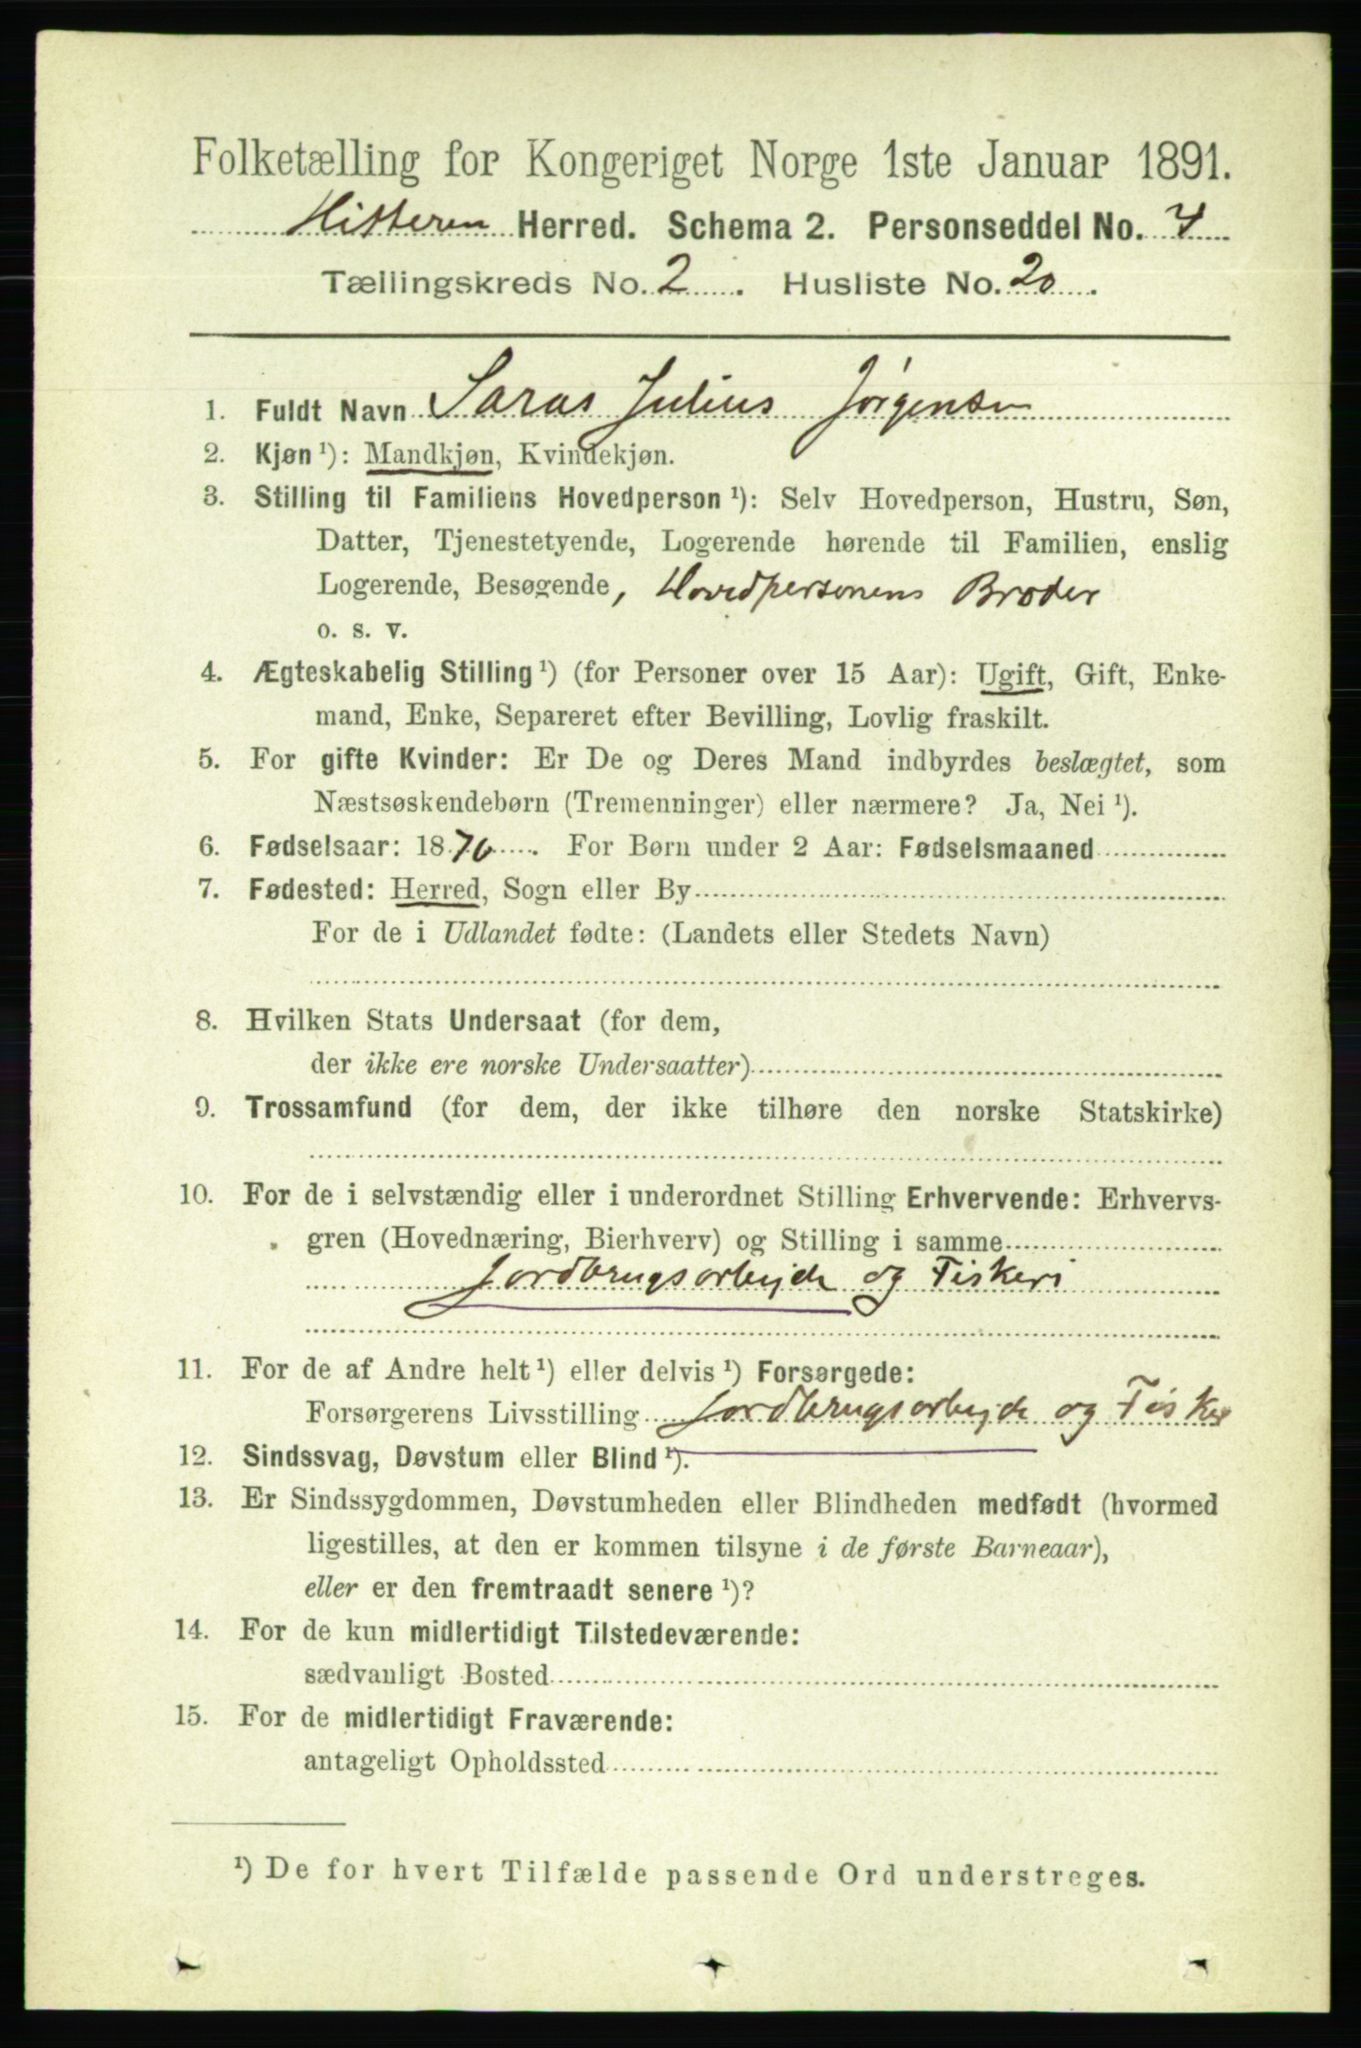 Folketælling for Kongeriget Norge 1ste Januar 1891.
Hitteren Herred. Schema 2. Personseddel No. 4
Tællingskreds No. 2. Husliste No. 20.
1. Fuldt Navn Saras Julius Jørgensen
2. Kjøn ¹): Mandkjøn, Kvindekjøn.
3. Stilling til Familiens Hovedperson ¹): Selv Hovedperson, Hustru, Søn,
Datter, Tjenestetyende, Logerende hørende til Familien, enslig
Logerende, Besøgende, Hovedpersonens Broder
o. s. v.
4. Ægteskabelig Stilling ¹) (for Personer over 15 Aar): Ugift, Gift, Enke-
mand, Enke, Separeret efter Bevilling, Lovlig fraskilt.
5. For gifte Kvinder: Er De og Deres Mand indbyrdes beslægtet, som
Næstsøskendebørn (Tremenninger) eller nærmere? Ja, Nei ¹).
6. Fødselsaar: 1876. For Børn under 2 Aar: Fødselsmaaned
7. Fødested: Herred, Sogn eller By
For de i Udlandet fødte: (Landets eller Stedets Navn)
8. Hvilken Stats Undersaat (for dem,
der ikke ere norske Undersaatter)
9. Trossamfund (for dem, der ikke tilhøre den norske Statskirke)
10. For de i selvstændig eller i underordnet Stilling Erhvervende: Erhvervs-
gren (Hovednæring, Bierhverv) og Stilling i samme
Jordbrugsarbejde og Fiskeri
11. For de af Andre helt ¹) eller delvis ¹) Forsørgede:
Forsørgerens Livsstilling Jordbrugsarbejde og Fisker
12. Sindssvag, Døvstum eller Blind ¹).
13. Er Sindssygdommen, Døvstumheden eller Blindheden medfødt (hvormed
ligestilles, at den er kommen tilsyne i de første Barneaar),
eller er den fremtraadt senere ¹)?
14. For de kun midlertidigt Tilstedeværende:
sædvanligt Bosted
15. For de midlertidigt Fraværende:
antageligt Opholdssted
¹) De for hvert Tilfælde passende Ord understreges.